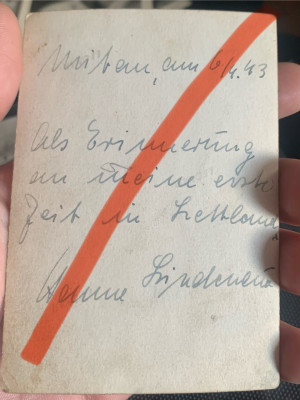 Mitau, am 6/1.43
Als Erinnerung
an meine erste
Zeit in Lettland
Hanne